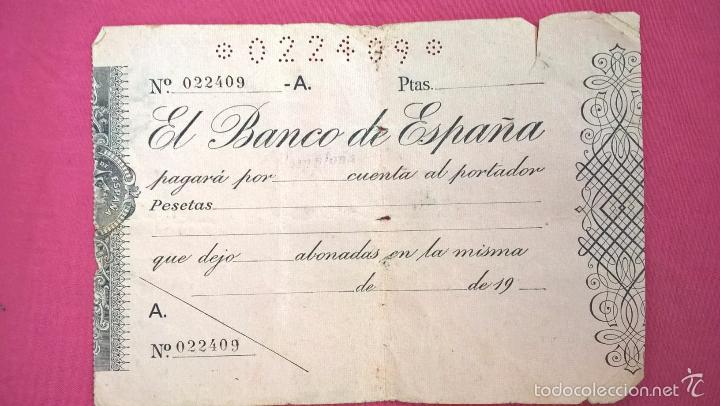 *022409*
Nº 022409 -A. Ptas.
El Banco de España
pagará por cuenta al portador
Pesetas
que dejo abonadas en la misma
de de 19
A.
Nº 022409
ESPAÑA
todocoleccion.net